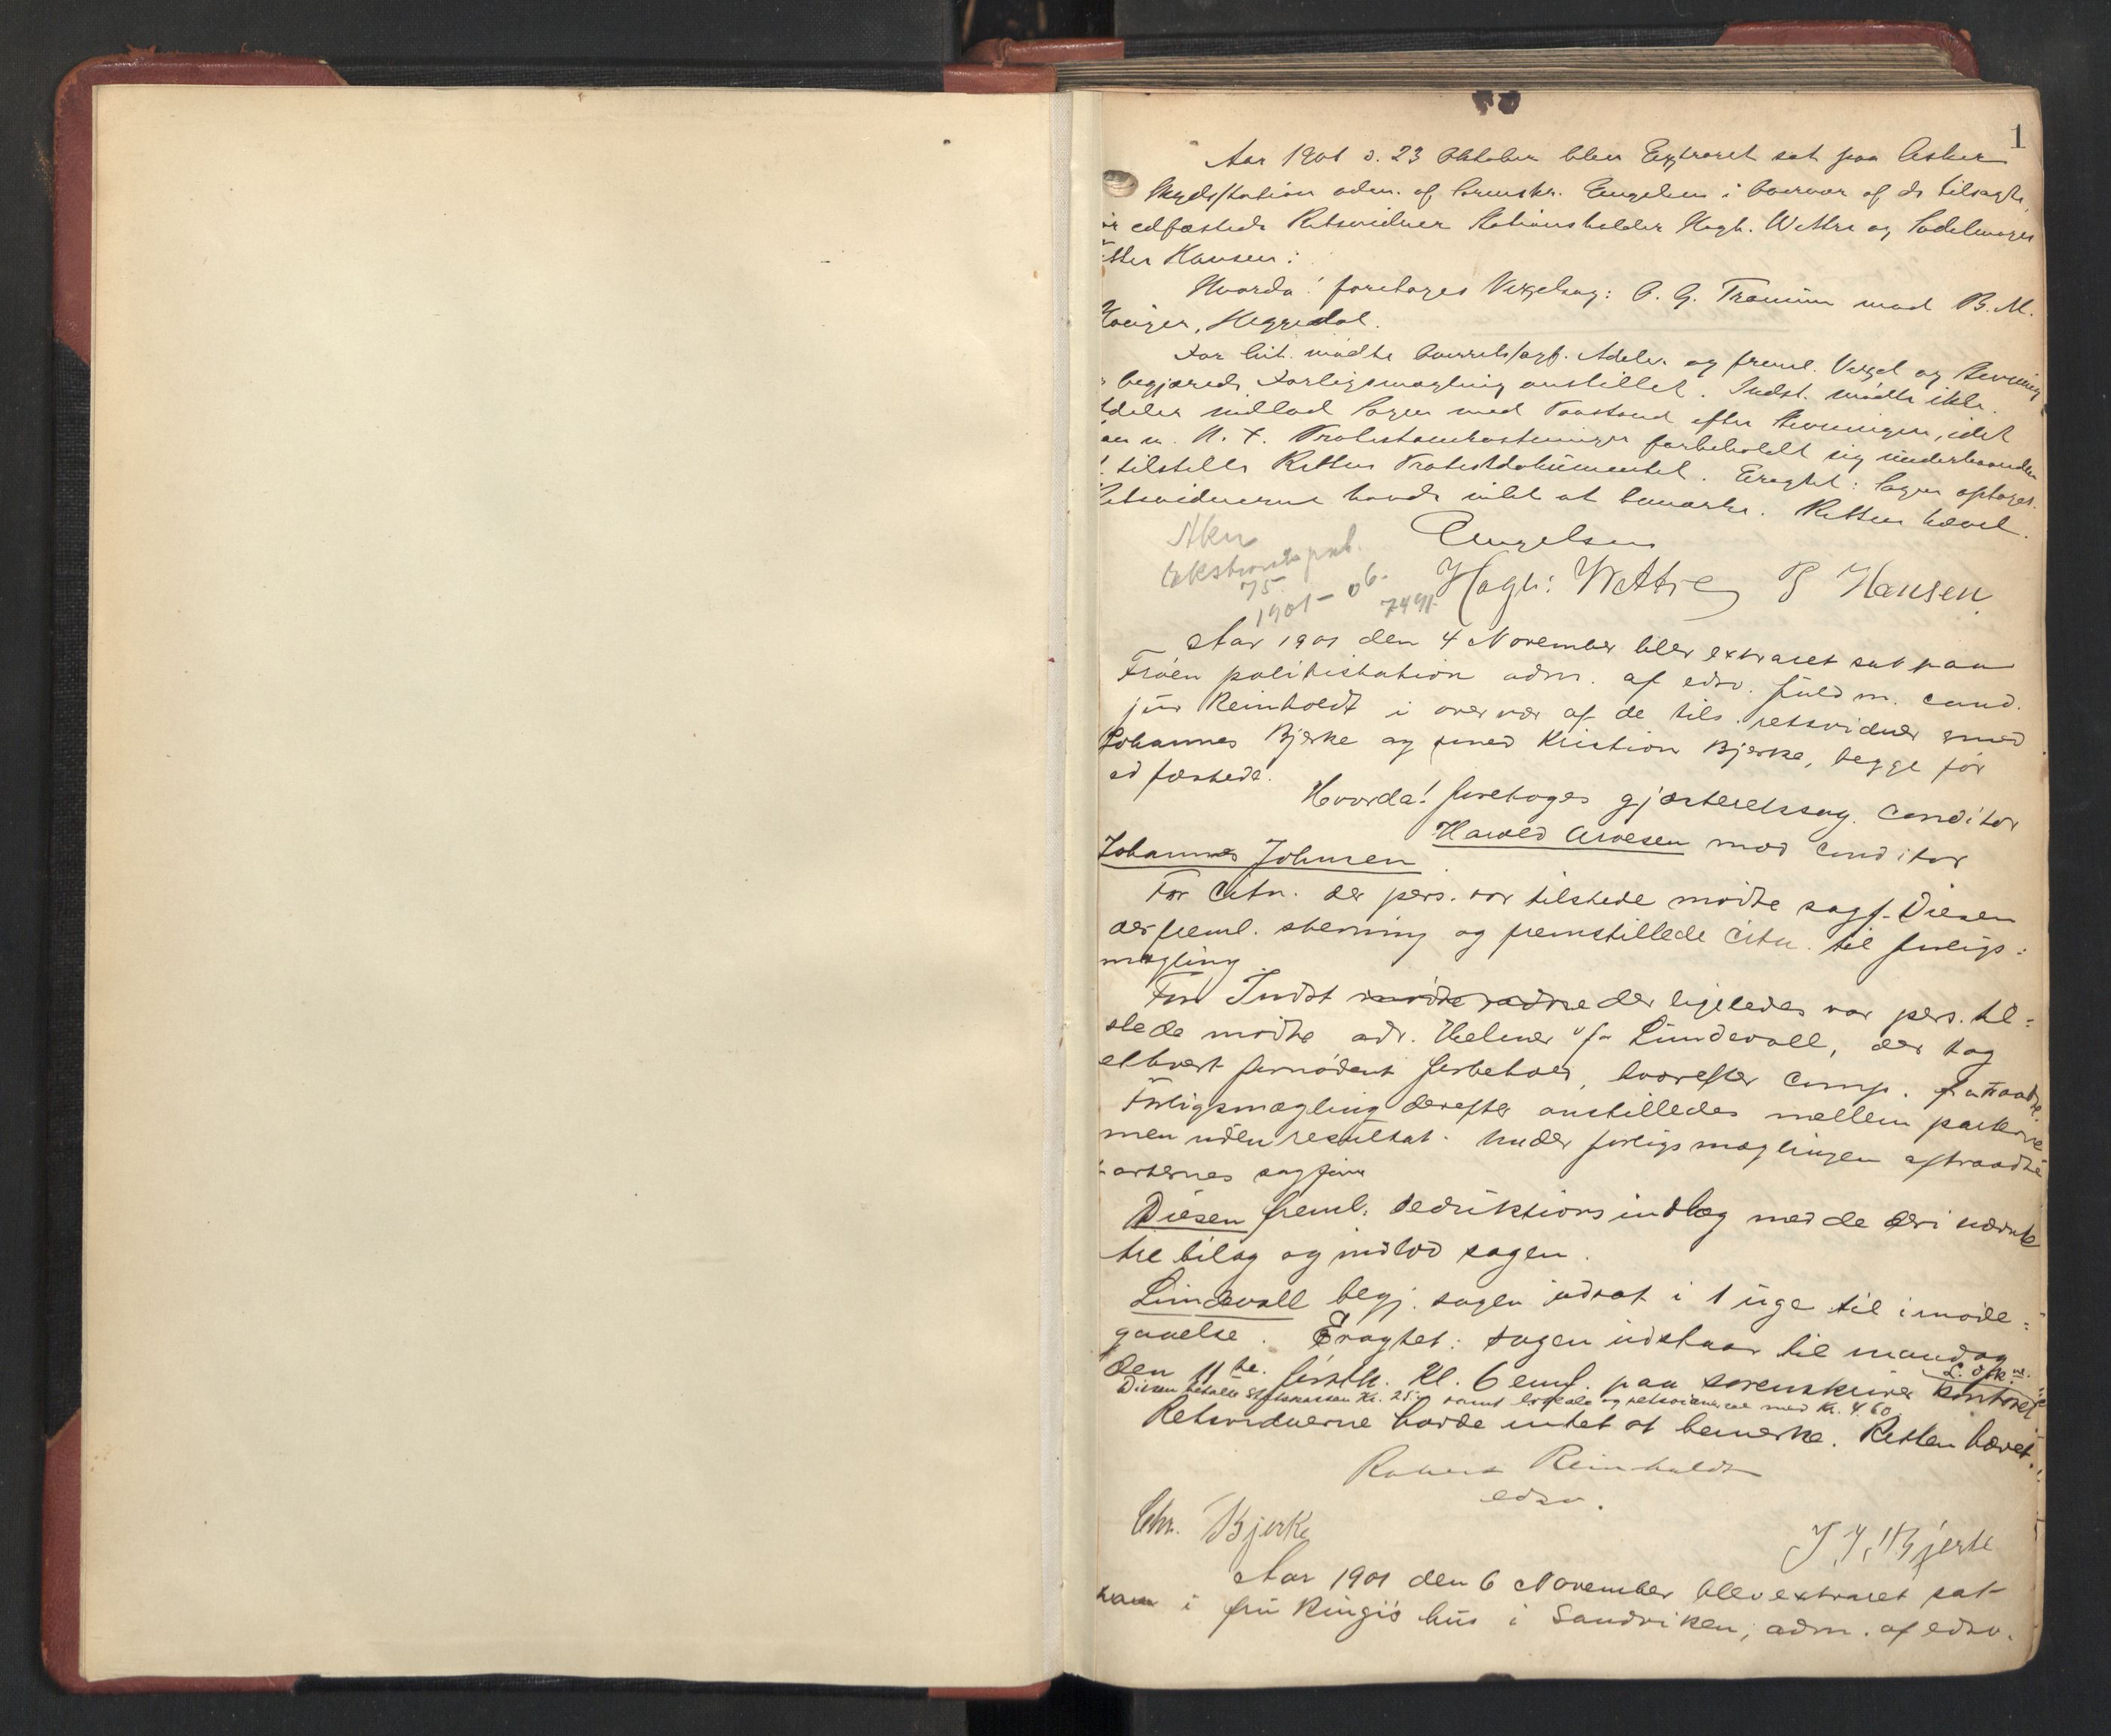 1
Aar 1901 d. 23 Oktober blev Extraret sat paa Asker
Skydsstation adm. af Sorenskr. Engelsen i Overvær af de tilsagte,
før edfæstede Retsvidner Stationsholder Hagb. Wettre og Sadelmager
Hansen:
Hvorda! foretoges Vexelsag: O. G. mod B. M.
Heggedal.
For Cit. mødte Overretssagf. Adeler og freml. Vexel og Stevning
begjærede Forligsmægling anstillet. Indst. mødte ikke.
Adeler indlod Sagen med Paastand efter Stevningen, idet
han m. H. t. Protestomkostninger forbeholdt sig underhaanden
at tilstille Retten Protestdokumentet. Eragtet: Sagen optages.
Retsvidnerne havde intet at bemærke. Retten hævet.
Engelsen
Aker
Ekstraretsprot.
75
1901-06.
7491
Hagb: Wettre P Hansen
Aar 1901 den 4 November blev extraret sat paa
Frøen politistation adm. af edsv. fuldm. cand.
jur Reinholdt i overvær af de tils. retsvidner smed
Johannes Bjerke og smed Kristian Bjerke, begge før
edfæstede.
Hvorda! foretoges gjæsteretssag. Conditor
Harald Arvesen mod Conditor
Johannes Johnsen
For Citn. der pers. var tilstede mødte sagf. Diesen
der freml. stevning og fremstillede Citn. til forligs:
mægling.
For Indst der ligeledes var pers. til=
stede mødte adv. Helmer v/ Lundevall, der tog
ethvert fornødent forbehold, hvorefter Comp. fratraadte.
Forligsmægling derefter anstilledes mellem parterne
men uden resultat. Under forligsmæglingen aftraadte
parternes sagfører
Diesen freml. deduktionsindlæg med de deri nævnte
tre bilag og indlod sagen.
Lundevall begj. sagen udsat i 1 uge til imøde=
gaaelse. Eragtet: sagen udstaar til mandag
den 11te førstk. Kl. 6 emd. paa sorenskriver kontoret
Diesen betalte Statskassen Kr. 25 samt og retsvidnerne med Kr. 4.60
Retsvidnerne havde intet at bemerke. Retten hævet.
Robert Reinholdt
edsv.
Chr. Bjerke
J. J. Bjerke
Aar 1901 den 6 November blev extraret sat
i fru Ringi's hus i Sandviken, adm. af edsv.